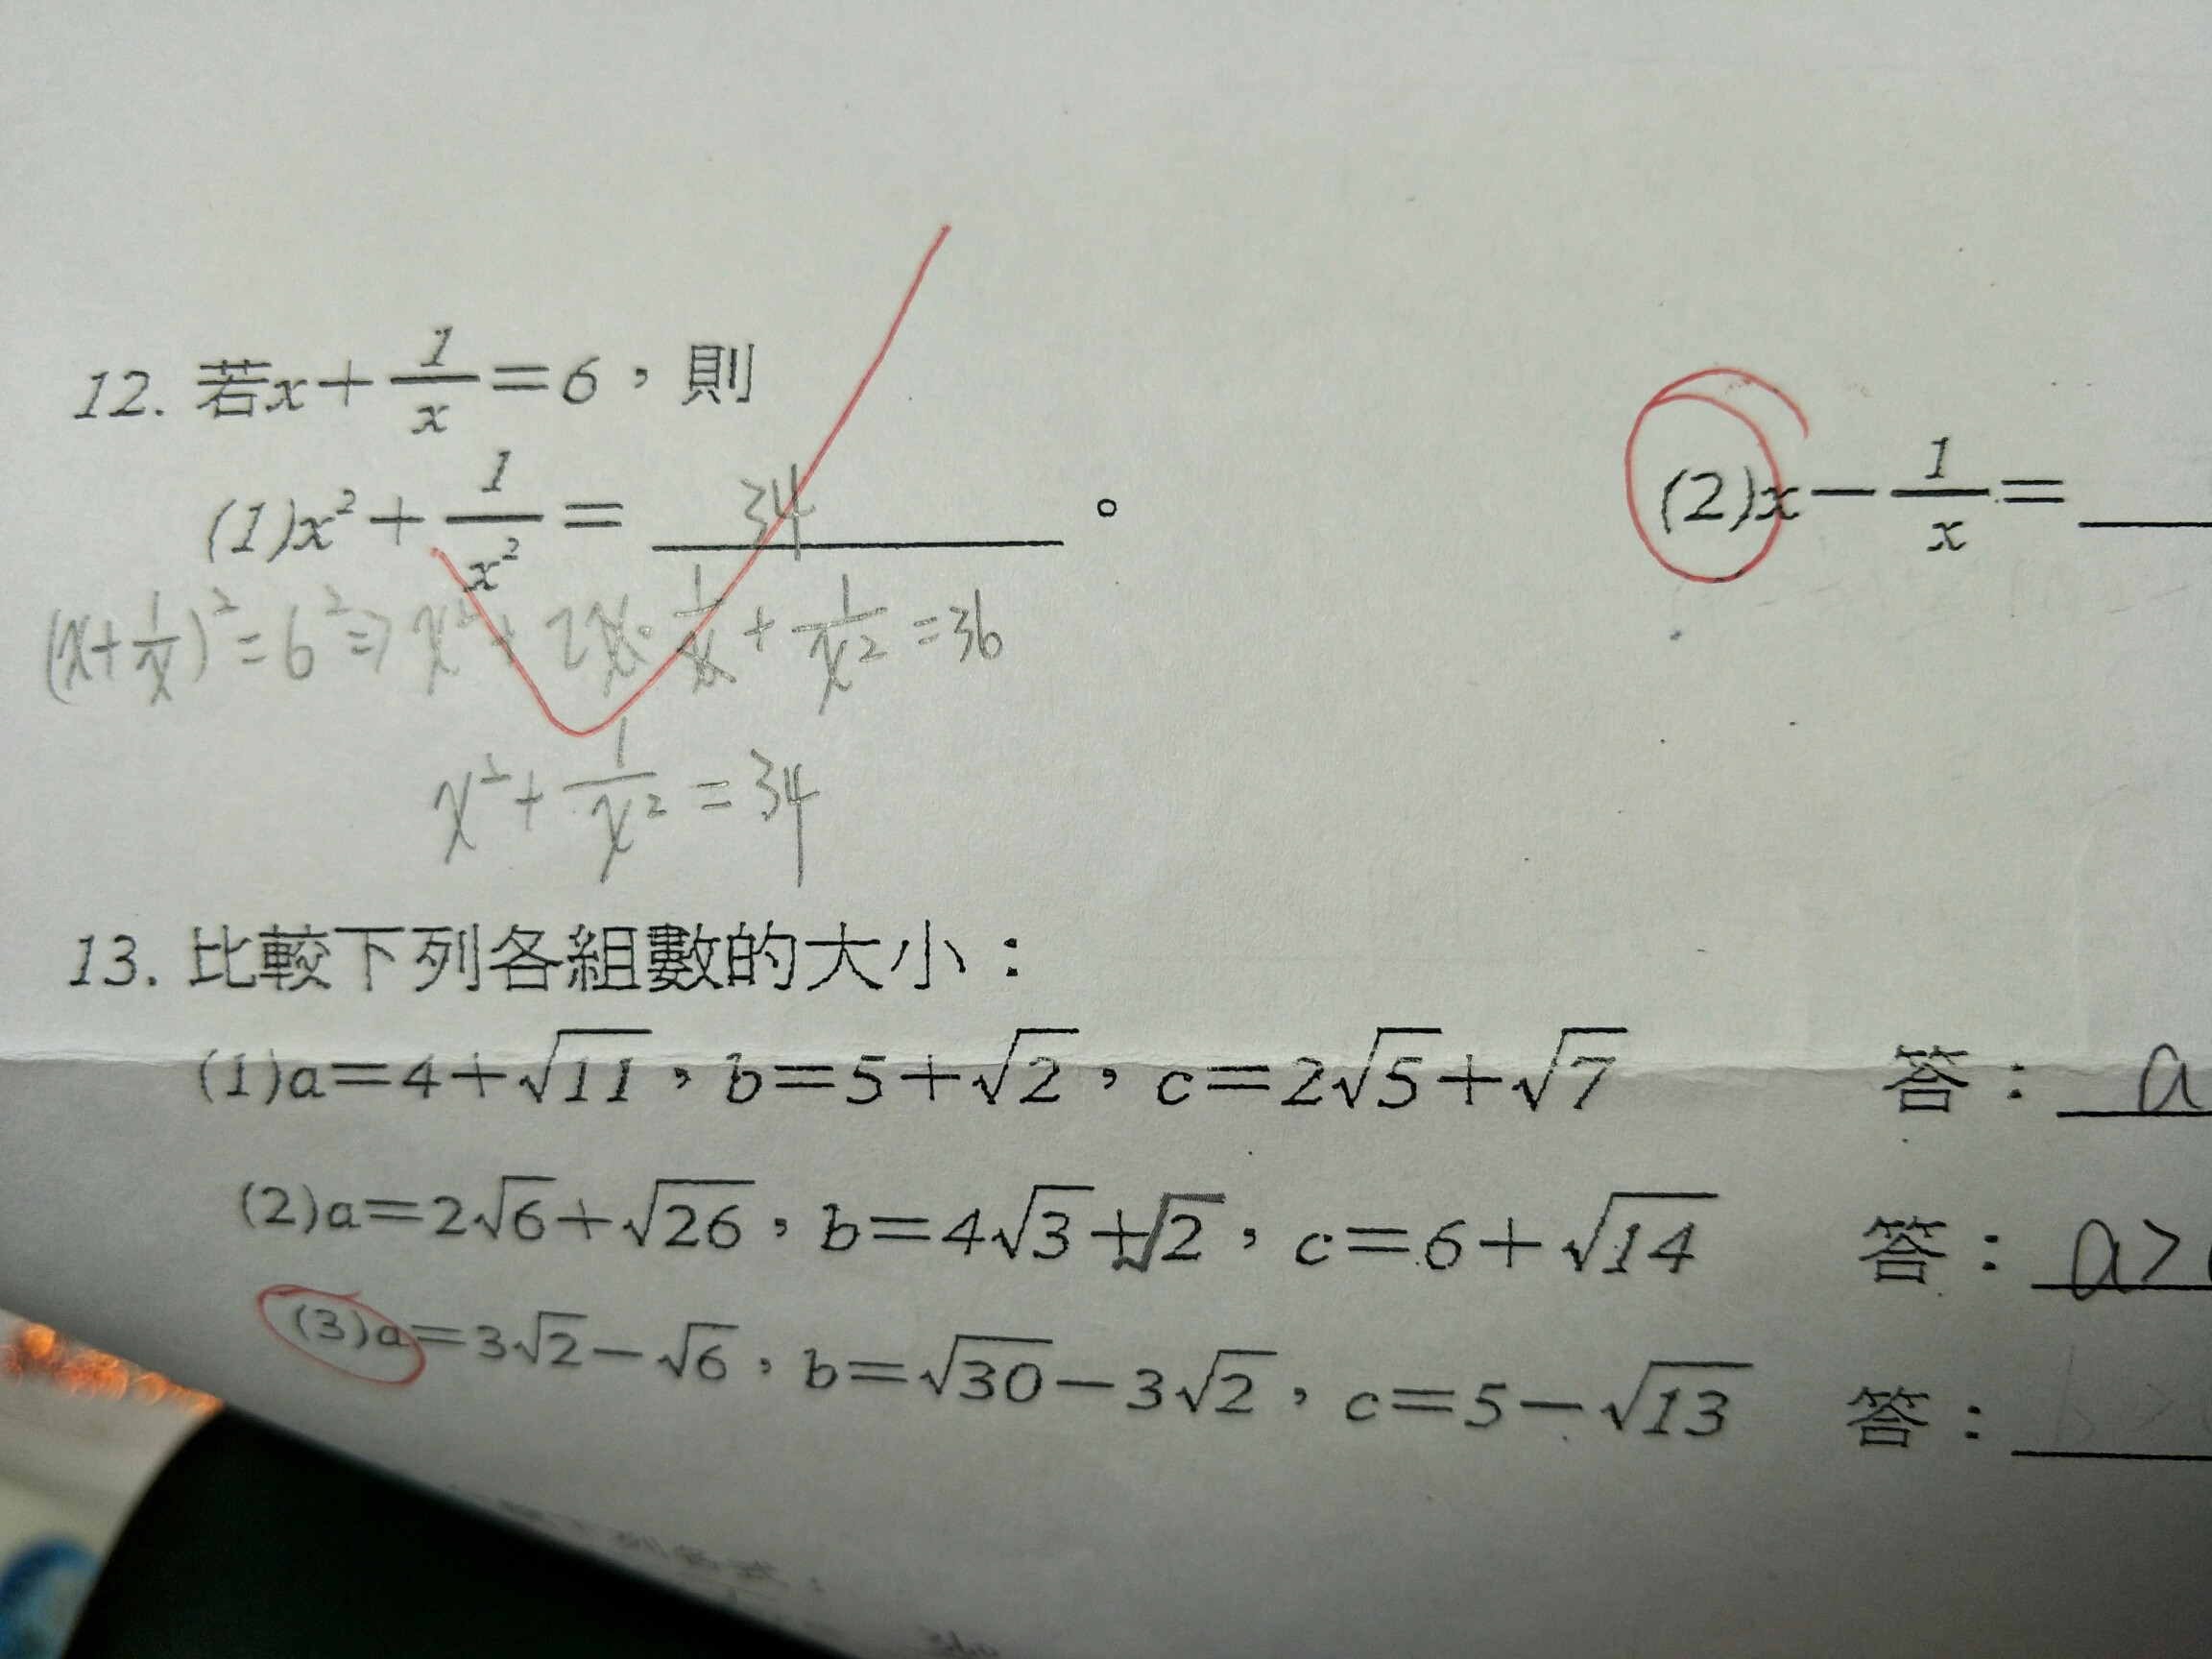 12. 若x+1/x=6，則
(1)x²+1/x²= 34 。
(2)x-1/x=
(x+1/x)²=6²⇒x²+2x·1/x+1/x²=36
x²+1/x²=34
13. 比較下列各組數的大小：
(1)a=4+√11，b=5+√2，c=2√5+√7 答：a
(2)a=2√6+√26，b=4√3+√2，c=6+√14 答：a>
(3)a=3√2-√6，b=√30-3√2，c=5-√13 答：b>